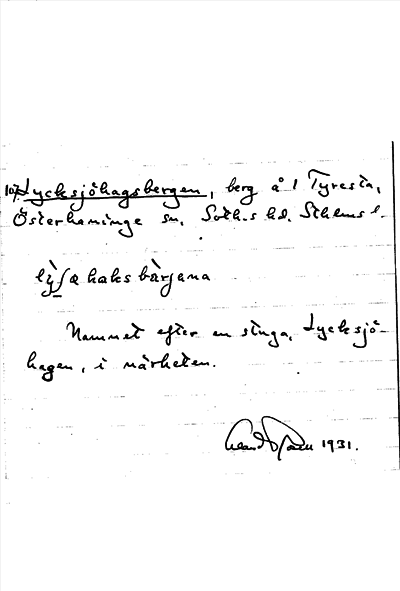 107. Lycksjöhagsbergen, berg å 1 Tyresta,
Österhaninge sn. Soth.s hd. Sthlms l.
lỳʃæ haks bàrjana
Namnet efter en stuga, Lycksjö-
hagen, i närheten.
1931.